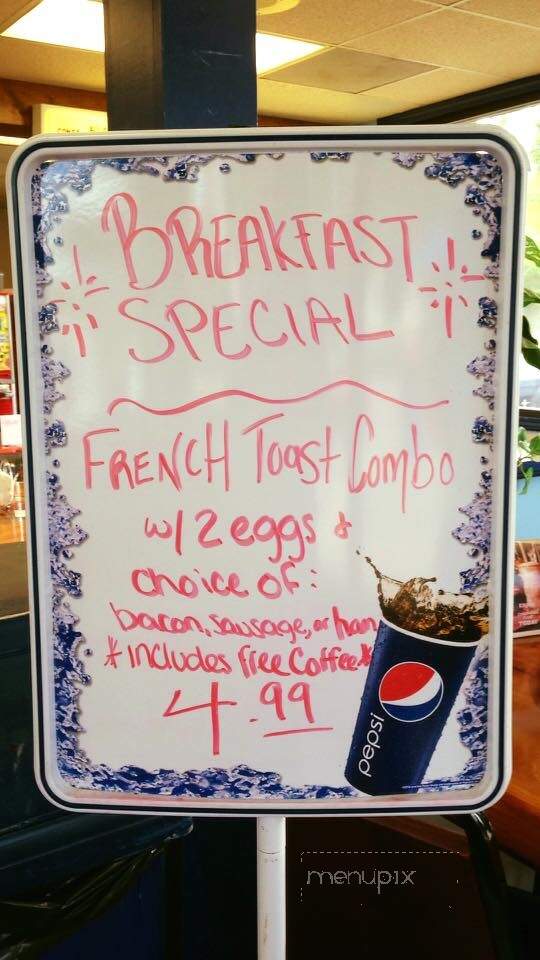 BREAKFAST
SPECIAL
FRENCH Toast Combo
w/ 2 eggs &
choice of:
bacon, sausage, or ham
* includes free Coffee *
4.99
pepsi
menupix